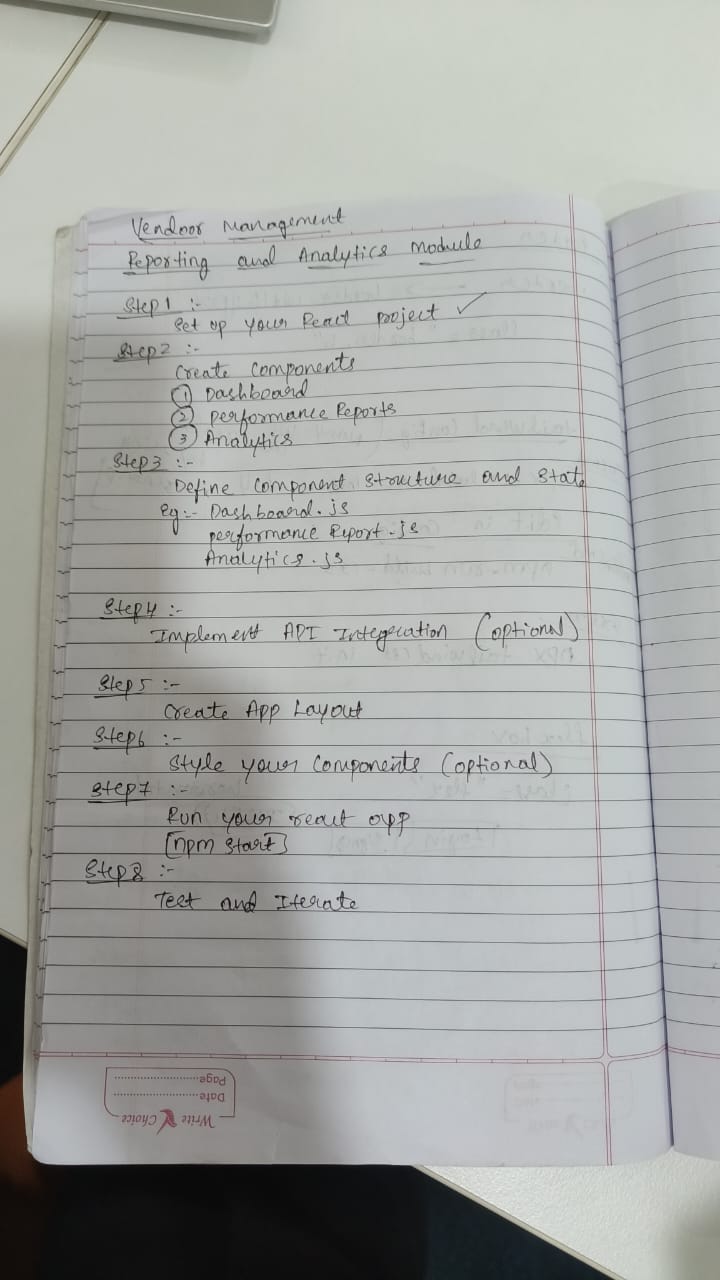 Vendoor Management
Reporting and Analytics Module
Step 1 :-
Set up your React project ✓
Step2 :-
Create Components
① Dashboard
② performance Reports
③ Analytics
Step3 :-
Define Component Structure and State
Eg:- Dashboard.js
performance Report.js
Analytics.js
Step4 :-
Implement API Integration (optional)
Step5 :-
Create App Layout
Step6 :-
Style your Components (optional)
Step7 :-
Run your react app
[npm start]
Step8 :-
Test and Iterate
Page
Date
Write Choice